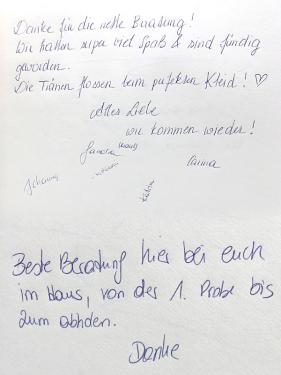 Danke für die nette Beratung!
Wir hatten super viel Spaß & sind fündig
geworden.
Die Tränen flossen beim perfekten Kleid! ♡
Alles Liebe
wir kommen wieder!
Sandra (Braut)
Johanna
Carina
Beste Beratung hier bei euch
im Haus, von der 1. Probe bis
zum abholen.
Danke